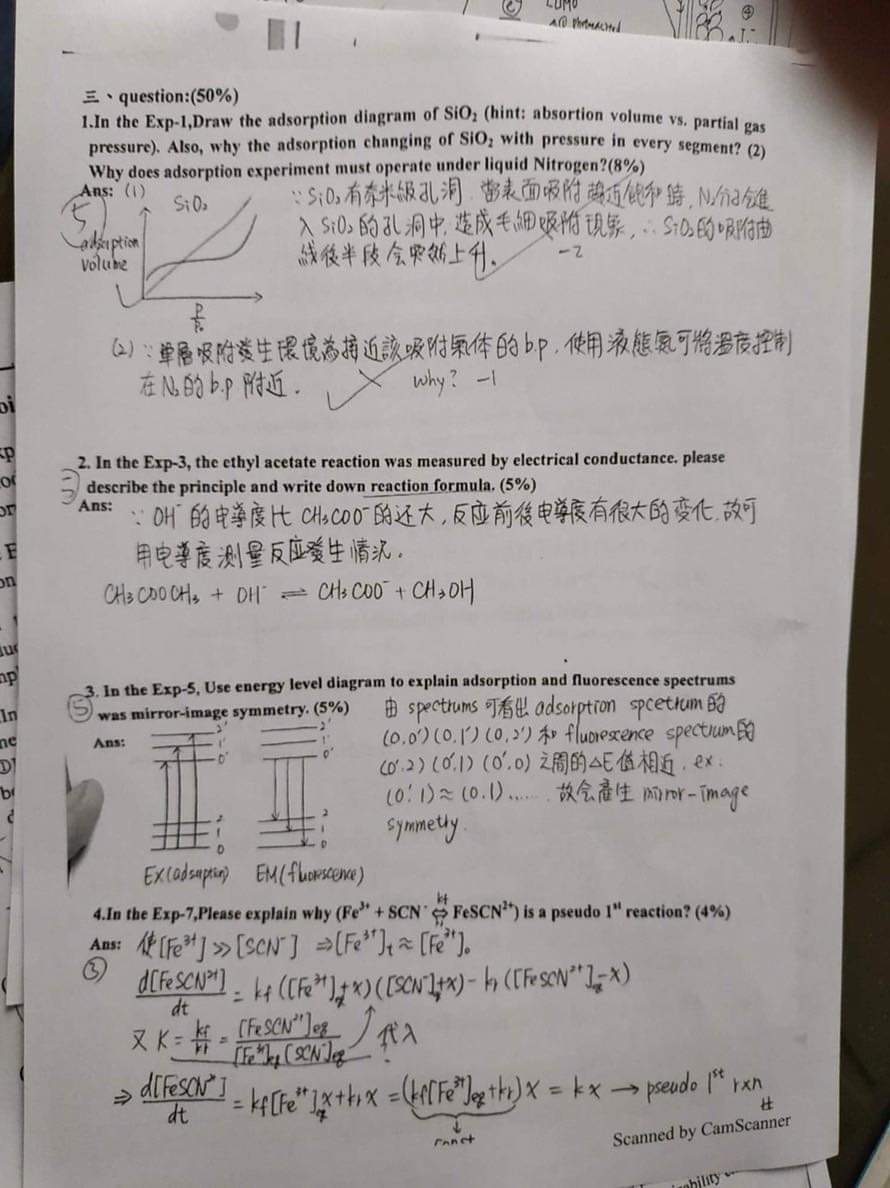 LUMO
三、question:(50%)
1.In the Exp-1,Draw the adsorption diagram of SiO₂ (hint: absortion volume vs. partial gas
pressure). Also, why the adsorption changing of SiO₂ with pressure in every segment? (2)
Why does adsorption experiment must operate under liquid Nitrogen?(8%)
Ans: (1)
5
SiO₂
adsorption
volume
P
P₀
∵ SiO₂有奈米級孔洞. 當表面吸附接近飽和時, N₂分子會進
入 SiO₂的孔洞中, 造成毛細吸附現象, ∴ SiO₂的吸附曲
線後半段会突然上升.
-2
(2) ∵ 單層吸附發生環境為接近該吸附氣体的b.p, 使用液態氮可將溫度控制
在N₂的b.p附近.
why? -1
2. In the Exp-3, the ethyl acetate reaction was measured by electrical conductance. please
describe the principle and write down reaction formula. (5%)
Ans:
∵ OH⁻ 的电導度比 CH₃COO⁻的还大, 反应前後电導度有很大的变化, 故可
用电導度測量反应發生情況.
CH₃COOCH₃ + OH⁻ ⇌ CH₃COO⁻ + CH₃OH
3. In the Exp-5, Use energy level diagram to explain adsorption and fluorescence spectrums
was mirror-image symmetry. (5%)
5
Ans:
2' 1' 0'
2 1 0
2' 1' 0'
2 1 0
EX(adsorption) EM(fluorescence)
由 spectrums 可看出 adsorption spcetrum 的
(0,0') (0,1') (0,2') 和 fluorescence spectrum的
(0',2) (0',1) (0',0) 之間的ΔE值相近. ex.
(0',1) ≈ (0,1) ...... 故会產生 mirror-image
symmetry.
4.In the Exp-7,Please explain why (Fe³⁺ + SCN⁻ ⇔ FeSCN²⁺) is a pseudo 1ˢᵗ reaction? (4%)
kf
Ans: 使[Fe³⁺] >> [SCN⁻] ⇒ [Fe³⁺]t ≈ [Fe³⁺]₀
3
d[FeSCN²⁺]/dt = kf([Fe³⁺]eq+x)([SCN⁻]eq+x) - kr([FeSCN²⁺]eq-x)
又 K = kf/kr = [FeSCN²⁺]eq/[Fe³⁺]eq[SCN⁻]eq 代入
⇒ d[FeSCN²⁺]/dt = kf[Fe³⁺]eq x + kr x = (kf[Fe³⁺]eq + kr)x = kx → pseudo 1ˢᵗ rxn #
Scanned by CamScanner